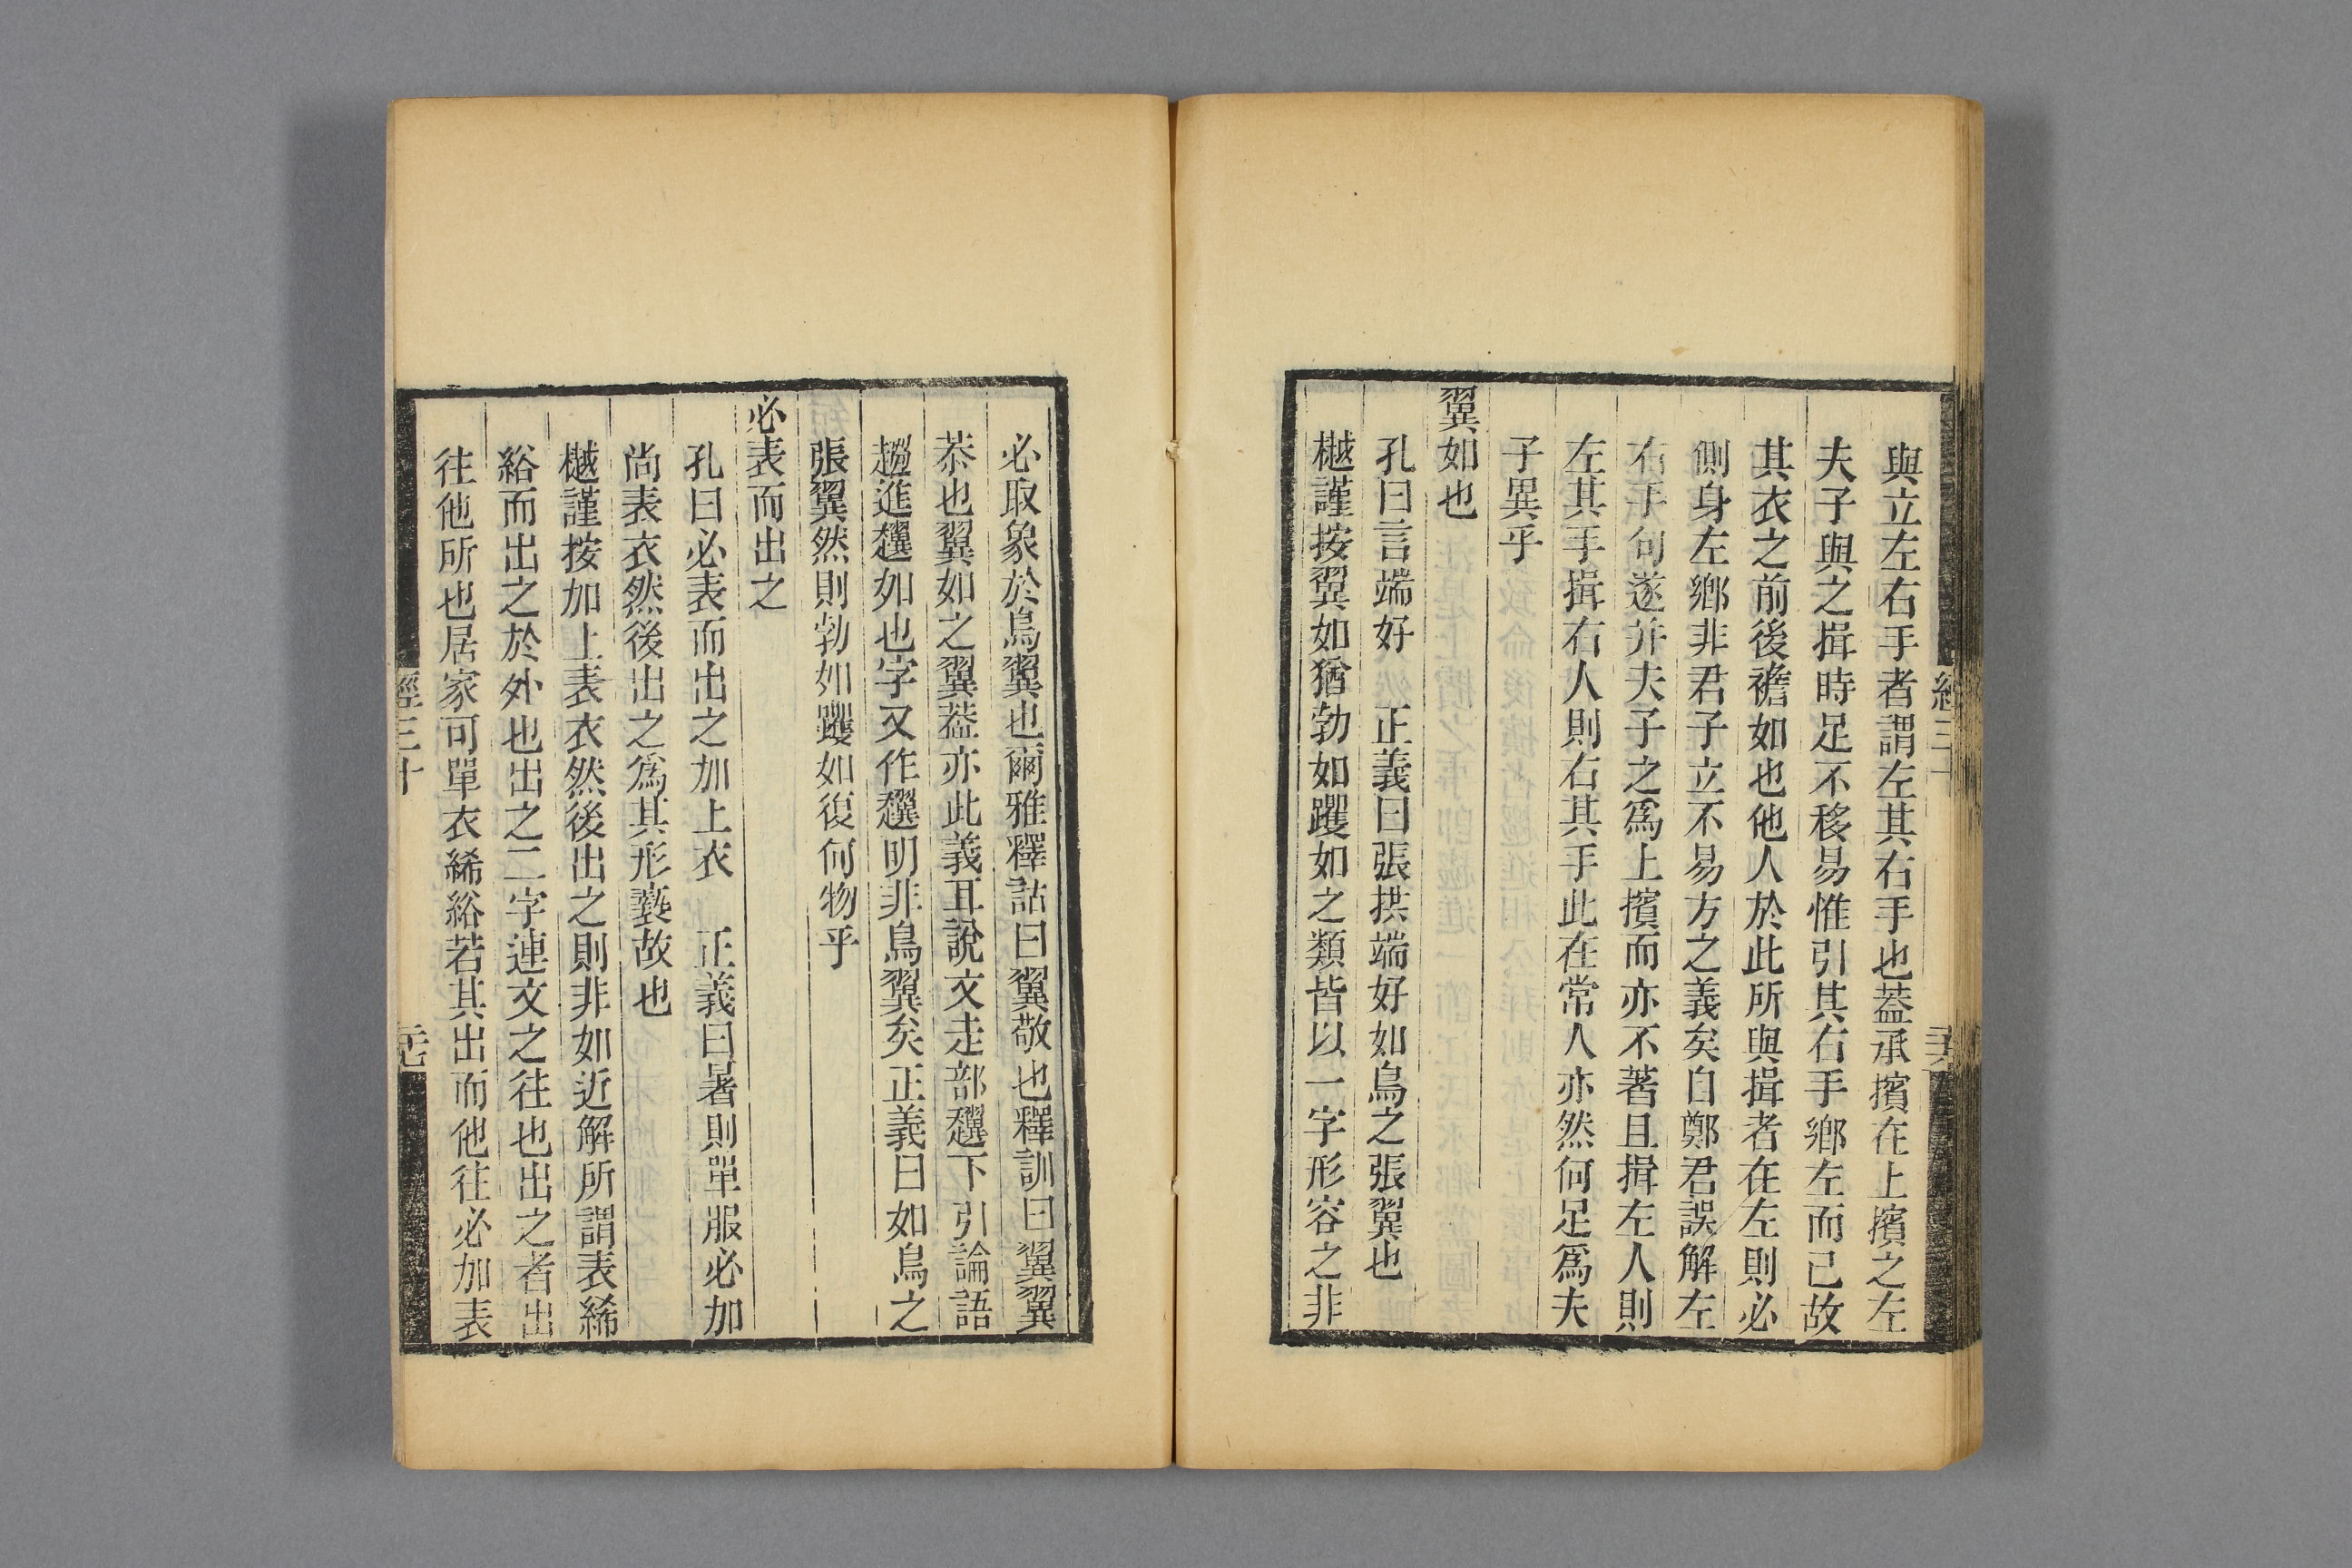 與立左右手者謂左其右手也葢承擯在上擯之左
夫子與之揖時足不移易惟引其右手鄉左而已故
其衣之前後襜如也他人於此所與揖者在左則必
側身左鄉非君子立不易方之義矣自鄭君誤解左
右手句遂幷夫子之爲上擯而亦不著且揖左人則
左其手揖右人則右其手此在常人亦然何足爲夫
子異乎
翼如也
孔曰言端好　正義曰張拱端好如鳥之張翼也
樾謹按翼如猶勃如躩如之類皆以一字形容之非
必取象於鳥翼也爾雅釋詁曰翼敬也釋訓曰翼翼
恭也翼如之翼葢亦此義耳說文走部趩下引論語
趨進趩如也字又作趩明非鳥翼矣正義曰如鳥之
張翼然則勃如躩如復何物乎
必表而出之
孔曰必表而出之加上衣　正義曰暑則單服必加
尚表衣然後出之爲其形褻故也
樾謹按加上表衣然後出之則非如近解所謂表絺
綌而出之於外也出之二字連文之往也出之者出
往他所也居家可單衣絺綌若其出而他往必加表
經三十